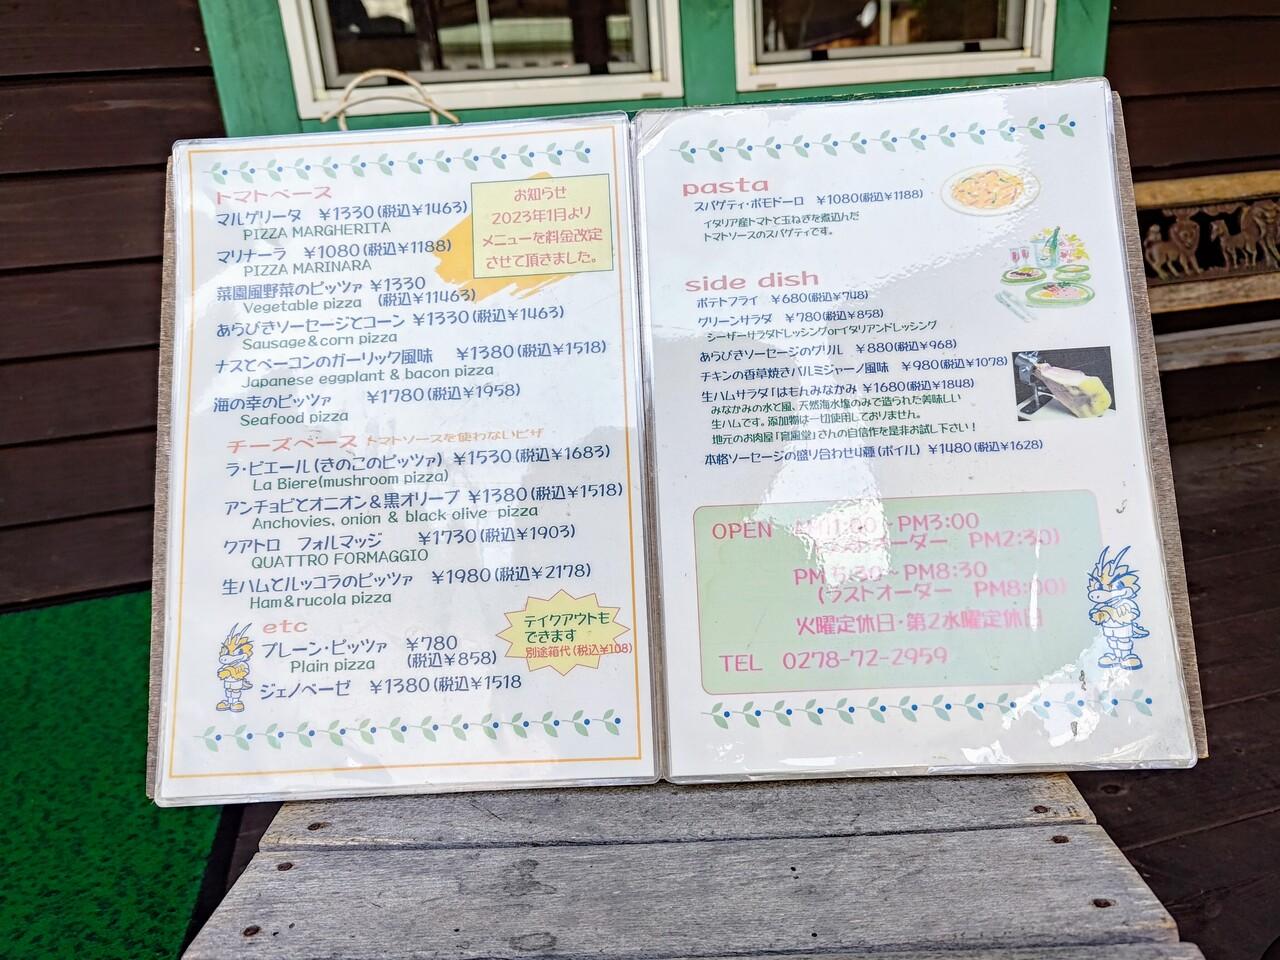 トマトベース
マルゲリータ ￥1330(税込￥1463)
PIZZA MARGHERITA
マリナーラ ￥1080(税込￥1188)
PIZZA MARINARA
菜園風野菜のピッツァ ￥1330
Vegetable pizza (税込￥11463)
あらびきソーセージとコーン ￥1330(税込￥1463)
Sausage&corn pizza
ナスとベーコンのガーリック風味 ￥1380(税込￥1518)
Japanese eggplant & bacon pizza
海の幸のピッツァ ￥1780(税込￥1958)
Seafood pizza
チーズベース トマトソースを使わないピザ
ラ・ビエール(きのこのピッツァ) ￥1530(税込￥1683)
La Biere(mushroom pizza)
アンチョビとオニオン&黒オリーブ ￥1380(税込￥1518)
Anchovies, onion & black olive pizza
クアトロ フォルマッジ ￥1730(税込￥1903)
QUATTRO FORMAGGIO
生ハムとルッコラのピッツァ ￥1980(税込￥2178)
Ham&rucola pizza
etc
プレーン・ピッツァ ￥780
Plain pizza (税込￥858)
ジェノベーゼ ￥1380(税込￥1518
お知らせ
2023年1月より
メニューを料金改定
させて頂きました。
テイクアウトも
できます
別途箱代(税込￥108)
pasta
スパゲティ・ポモドーロ ￥1080(税込￥1188)
イタリア産トマトと玉ねぎを煮込んだ
トマトソースのスパゲティです。
side dish
ポテトフライ ￥680(税込￥748)
グリーンサラダ ￥780(税込￥858)
シーザーサラダドレッシングorイタリアンドレッシング
あらびきソーセージのグリル ￥880(税込￥968)
チキンの香草焼きパルミジャーノ風味 ￥980(税込￥1078)
生ハムサラダ「はもんみなかみ ￥1680(税込￥1848)
みなかみの水と風、天然海水塩のみで造られた美味しい
生ハムです。添加物は一切使用しておりません。
地元のお肉屋「育風堂」さんの自信作を是非お試し下さい!
本格ソーセージの盛り合わせ4種(ボイル) ￥1480(税込￥1628)
OPEN AM11:00〜PM3:00
(ラストオーダー PM2:30)
PM5:30〜PM8:30
(ラストオーダー PM8:00)
火曜定休日・第2水曜定休日
TEL 0278-72-2959